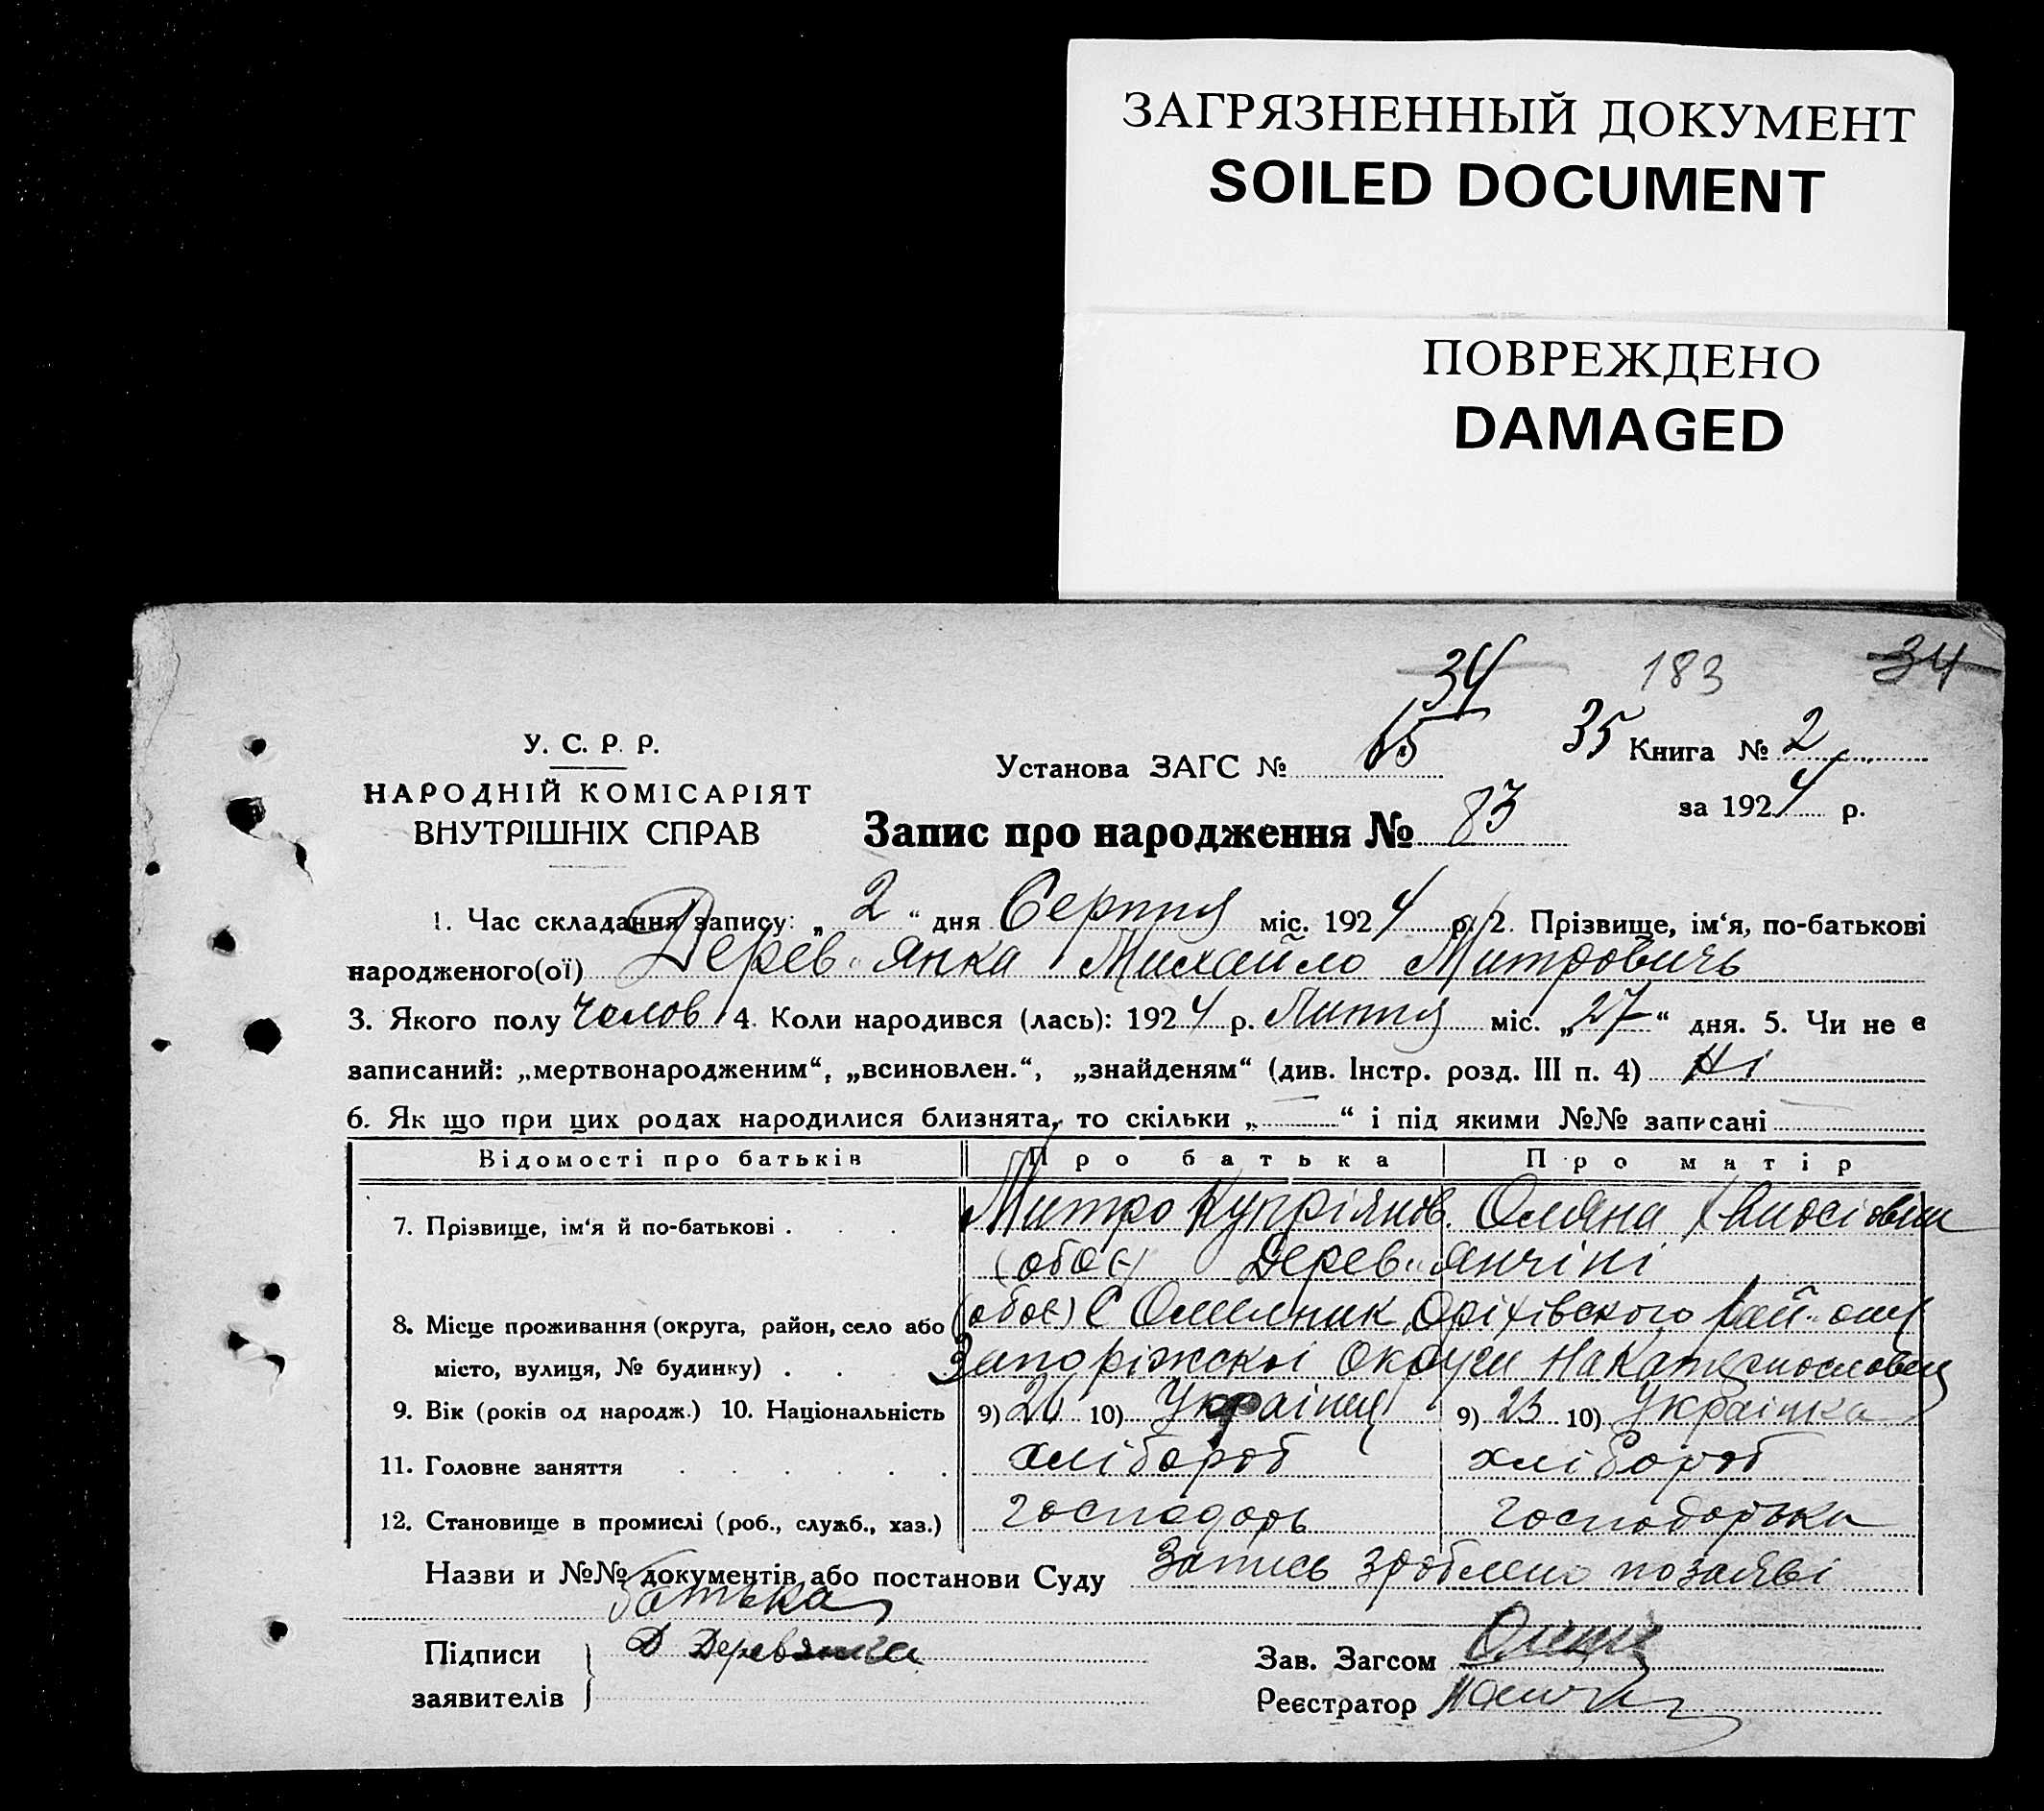 ЗАГРЯЗНЕННЫЙ ДОКУМЕНТ
SOILED DOCUMENT
ПОВРЕЖДЕНО
DAMAGED
34 183 34
У. С. Р. Р.
НАРОДНІЙ КОМІСАРІЯТ
ВНУТРІШНІХ СПРАВ
Установа ЗАГС № 65 35 Книга № 2
Запис про народження № 83 за 1924 р.
1. Час складання запису: „2“ дня Серпня міс. 1924 р. 2. Прізвище, ім‘я, по-батькові
народженого(ої) Дерев"янка Михайло Митровичь
3. Якого полу чолов 4. Коли народився (лась): 1924 р. Липня міс. „27“ дня. 5. Чи не є
записаний: „мертвонародженим“, „всиновлен.“, „знайденям“ (див. Інстр. розд. III п. 4) Ні
6. Як що при цих родах народилися близнята, то скільки „—“ і під якими №№ записані —
Відомості про батьків Про батька Про матір
7. Прізвище, ім‘я й по-батькові . . . Митро Купріянов. Оляна
(обоє) Дерев"янчіні
8. Місце проживання (округа, район, село або (обоє) С Омельник Оріхівского рай"ону
місто, вулиця, № будинку) . . . Запоріжскої Округи на Катеринославщ
9. Вік (років од народж.) 10. Національність 9) 26 10) Українец 9) 23 10) Українка
11. Головне заняття . . . . . . хлібороб хлібороб
12. Становище в промислі (роб., служб., хаз.) господарь господарька
Назви и №№ документів або постанови Суду Запись зроблено по заяві
батька
Підписи
заявителів
Д Деревянка
Зав. Загсом
Реєстратор